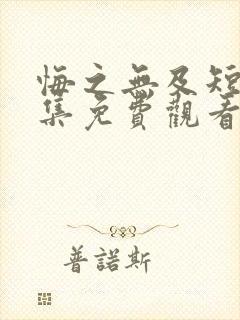 悔之無及短
集免費觀看
普諾斯